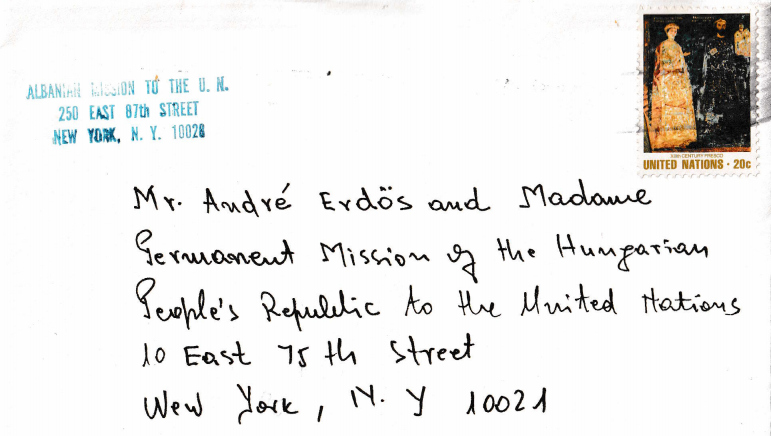 ALBANIAN MISSION TO THE U. N.
250 EAST 87th STREET
NEW YORK, N. Y. 10028
13th CENTURY FRESCO
UNITED NATIONS · 20c
Mr. André Erdös and Madame
Permanent Mission of the Hungarian
People's Republic to the United Nations
10 East 75 th Street
New York, N. Y 10021